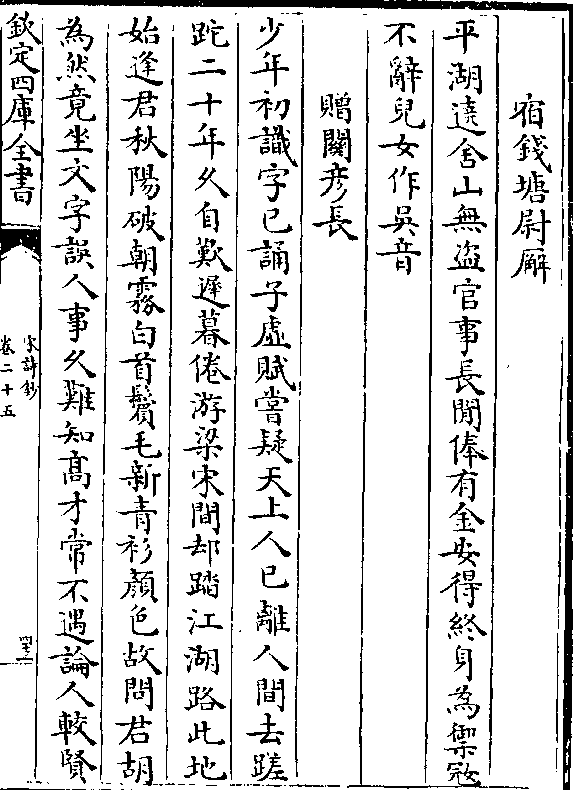 宿錢塘尉廨
平湖遶舍山無盗官事長閒俸有金安得終身為禦寇
不辭兒女作吳音
贈關彦長
少年初識字已誦子虛賦嘗疑天上人已離人間去蹉
跎二十年久自歎遲暮倦游梁宋間却踏江湖路此地
始逢君秋陽破朝霧白首鬢毛新青衫顔色故問君胡
為然竟坐文字誤人事久難知髙才常不遇論人較賢
欽定四庫全書
宋詩鈔
卷二十五